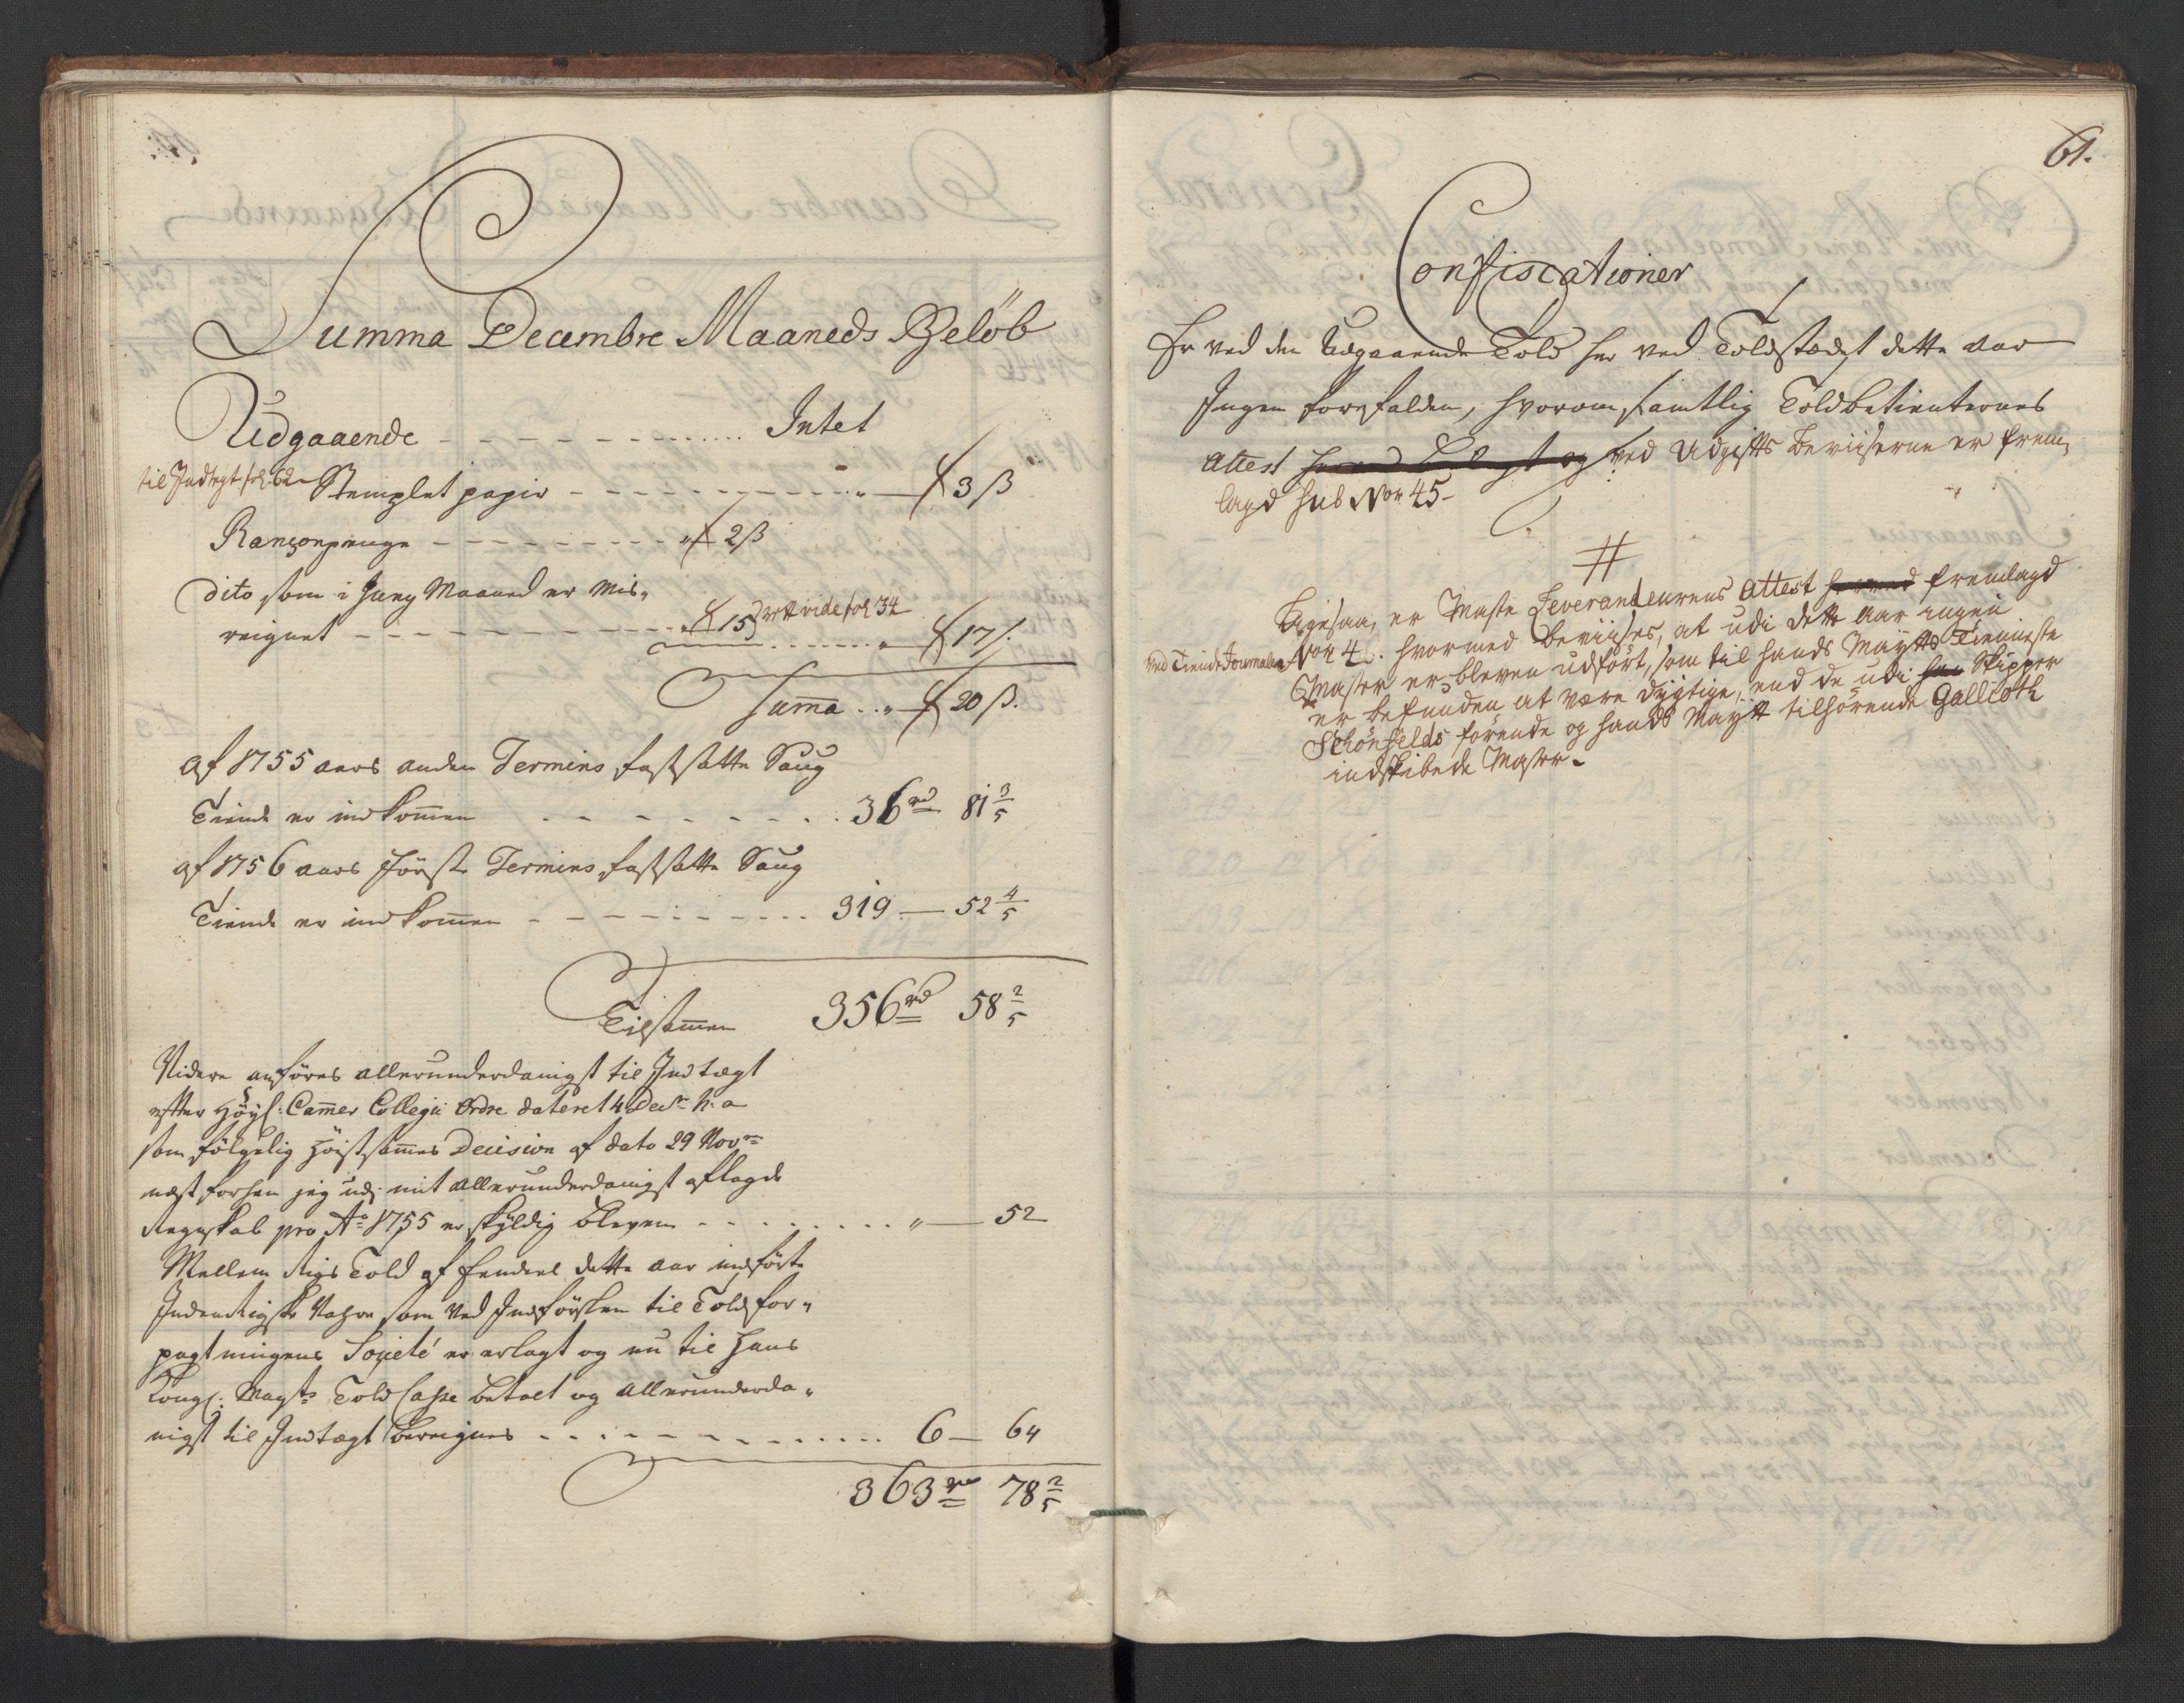 Summa Decembre Maaneds Beløb
Udgaaende - - - - - - - - - Intet
til Indtegt fol: 62 Stemplet papir - - - - - - - - - " — 3 ß
Rançonpenge - - - - - - - - - " 2 ß
Dito som i Juny Maaned er Mis„
reignet - - - - - - - - - 15 ß rt vide fol 34
" 17 ß
Suma .. " 20 ß.
Af 1755 aars anden Termins fastsatte Saug
Tiende er indkommen - - - - - - - - 36 rd 81 3/5
Af 1756 aars Første Termins fastsatte Saug
Tiende er indkommen - - - - - - - - 319 — 52 4/5
Tilsammen 356 rd 58 2/5
Videre anføres allerunderdanigst til Indtægt
efter Høyl: Camer Collegii Ordre dateret 4 Decbr h: a
som følgelig Høistsammes Decision af dato 29 Novbr
næst forhen jeg udi mit allerunderdanigst aflagde
Regnskab pro Ao 1755 er skyldig bleven - - - - - - - - " — 52
Mellem Rigs Told af dette aar indførte
Indenrigske Vahre som ved Indførselen til Toldfor„
pagtningens Societé er erlagt og nu til Hans
Kongl: Mayts Told Casse betalt og allerunderda„
nigst til Indtægt bereignes - - - - - - - - 6 — 64
363 rd 78 2/5
61.
Confiscationer
Er ved den Udgaaende Told her ved Toldstædet dette Aar
Ingen forefalden, hvorom samtlig Toldbetienternes
Attest ved Udgifts Beviiserne er frem„
lagd sub Nor 45-
#
Ligesaa er Maste Leverandeurens Attest herved fremlagd
ved Tiende Journalen Nor 46. hvormed beviises, at udi dette Aar ingen
Master er bleven udført, som til hands Maytts Tienneste
er befunden at være dygtige, end de udi Skipper
Schönfelds førende og hands Maytt tilhørende Gallioth
indskibede Master.